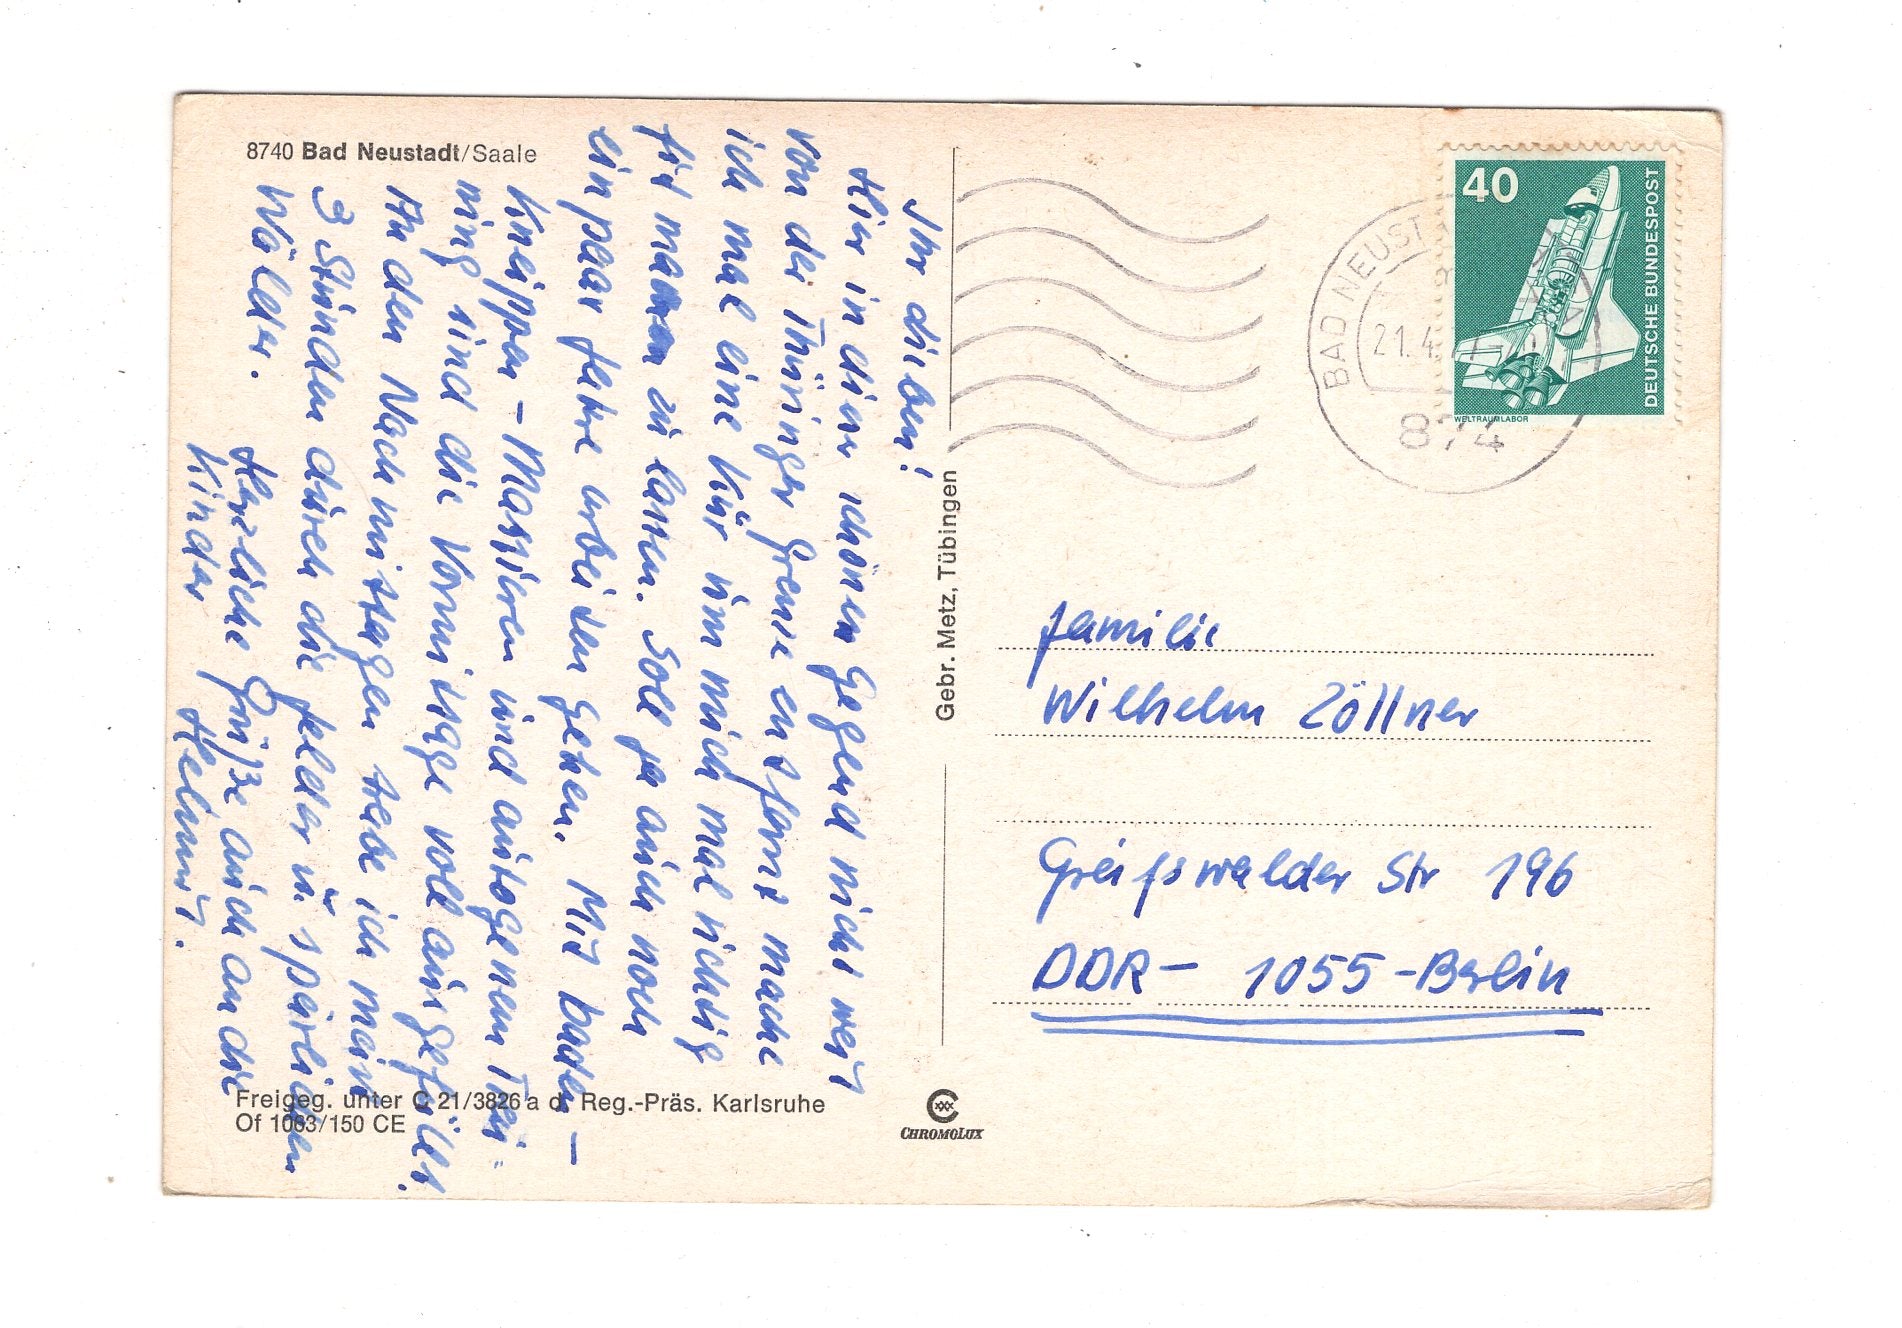 8740 Bad Neustadt/Saale
Ihr dieben!
Hier in dieser schönen Gegend nicht weit
von der Thüringer Grenze entfernt mache
ich mal eine Kur um mich mal richtig
fit machen zu lassen. Soll ja auch noch
ein paar Jahre arbeiten gehen. Mit baden –
Kneippen – Massieren und autogenem Trai-
ning sind die Vormittage voll ausgefüllt.
An den Nachmittagen trabe ich meine
3 Stunden durch die Felder u. spärlichen
Wälder.
Herzliche Grüße auch an die
Kinder
Helmut.
Freigeg. unter C 21/3826 a d. Reg.-Präs. Karlsruhe
Of 1063/150 CE
Gebr. Metz, Tübingen
CHROMOLUX
BAD NEUST
21.4.
874
40
DEUTSCHE BUNDESPOST
WELTRAUMLABOR
Familie
Wilhelm Zöllner
Greifswalder Str 196
DDR – 1055 - Berlin